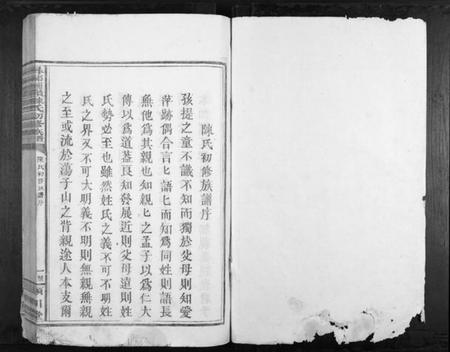 陳氏初修族譜序
孩提之童不識不知而獨於父母則知愛
萍跡偶合言匕語匕而知為同姓則語長
無他為其親也知親匕之孟子以為仁大
傳以為道蓋良知發展近則父母遠則姓
氏勢必至也雖然姓氏之義不可不明姓
氏之界又不可太明義不明則無親無親
之至或流於蕩子山之背親逾人本支爾
陳氏初修族譜序